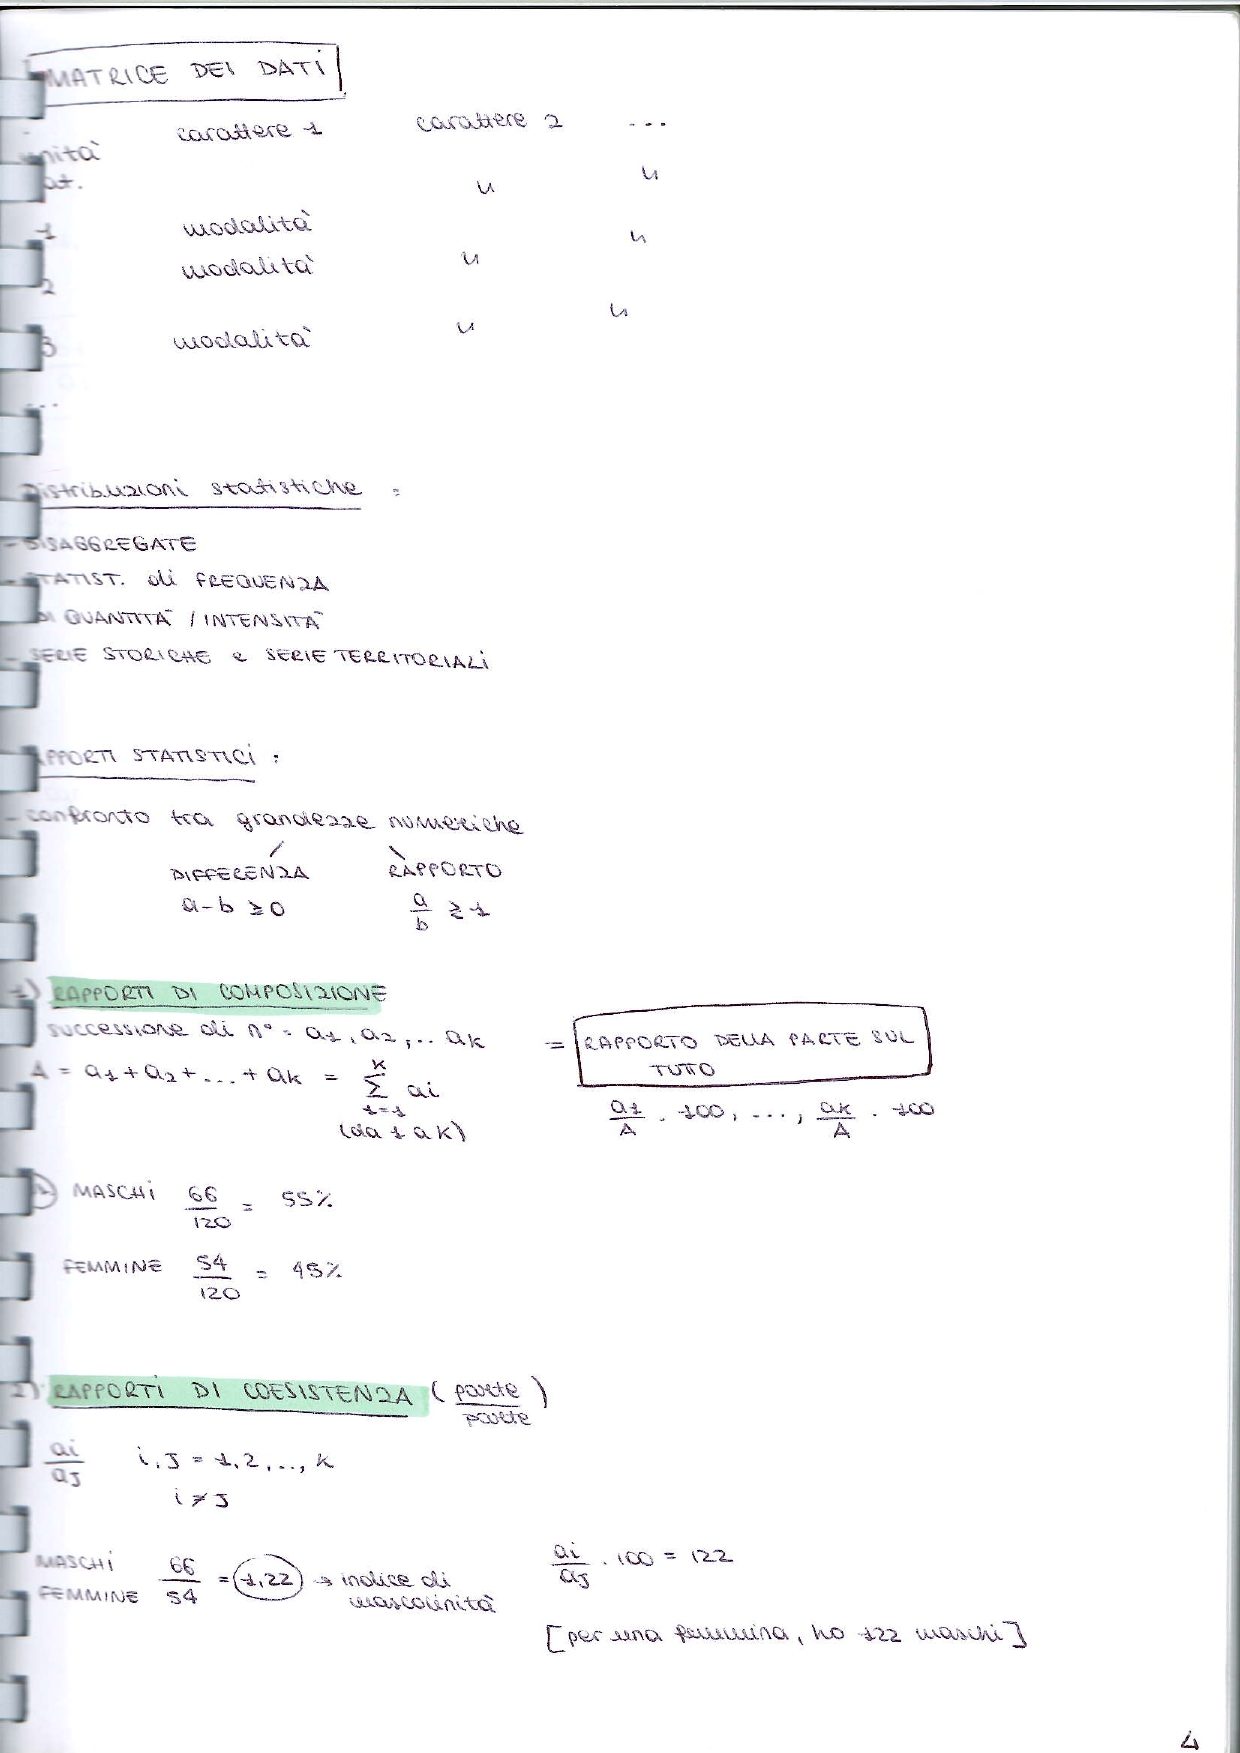 MATRICE DEI DATI
carattere 1 carattere 2 ...
unità
at.
u u
1 modalità
u
2 modalità u
u
3 modalità u
...
Distribuzioni statistiche :
- DISAGGREGATE
- STATIST. di FREQUENZA
DI QUANTITA' / INTENSITA'
- SERIE STORICHE e SERIE TERRITORIALI
APPORTI STATISTICI :
- confronto tra grandezze numeriche
DIFFERENZA RAPPORTO
a-b ⋛ 0 a/b ⋛ 1
1) RAPPORTI DI COMPOSIZIONE
successione di n° = a1, a2, .. ak = RAPPORTO DELLA PARTE SUL TUTTO
A = a1 + a2 + ... + ak = K Σ 1=1 ai
(da 1 a k)
a1/A . 100, ..., ak/A . 100
MASCHI 66/120 = 55%
FEMMINE 54/120 = 45%
2) RAPPORTI DI COESISTENZA (parte/parte)
ai/aJ i, J = 1, 2, .., K
i ≠ J
MASCHI/FEMMINE 66/54 = 1,22 → indice di mascolinità
ai/aJ . 100 = 122
[per una femmina, ho 122 maschi]
4